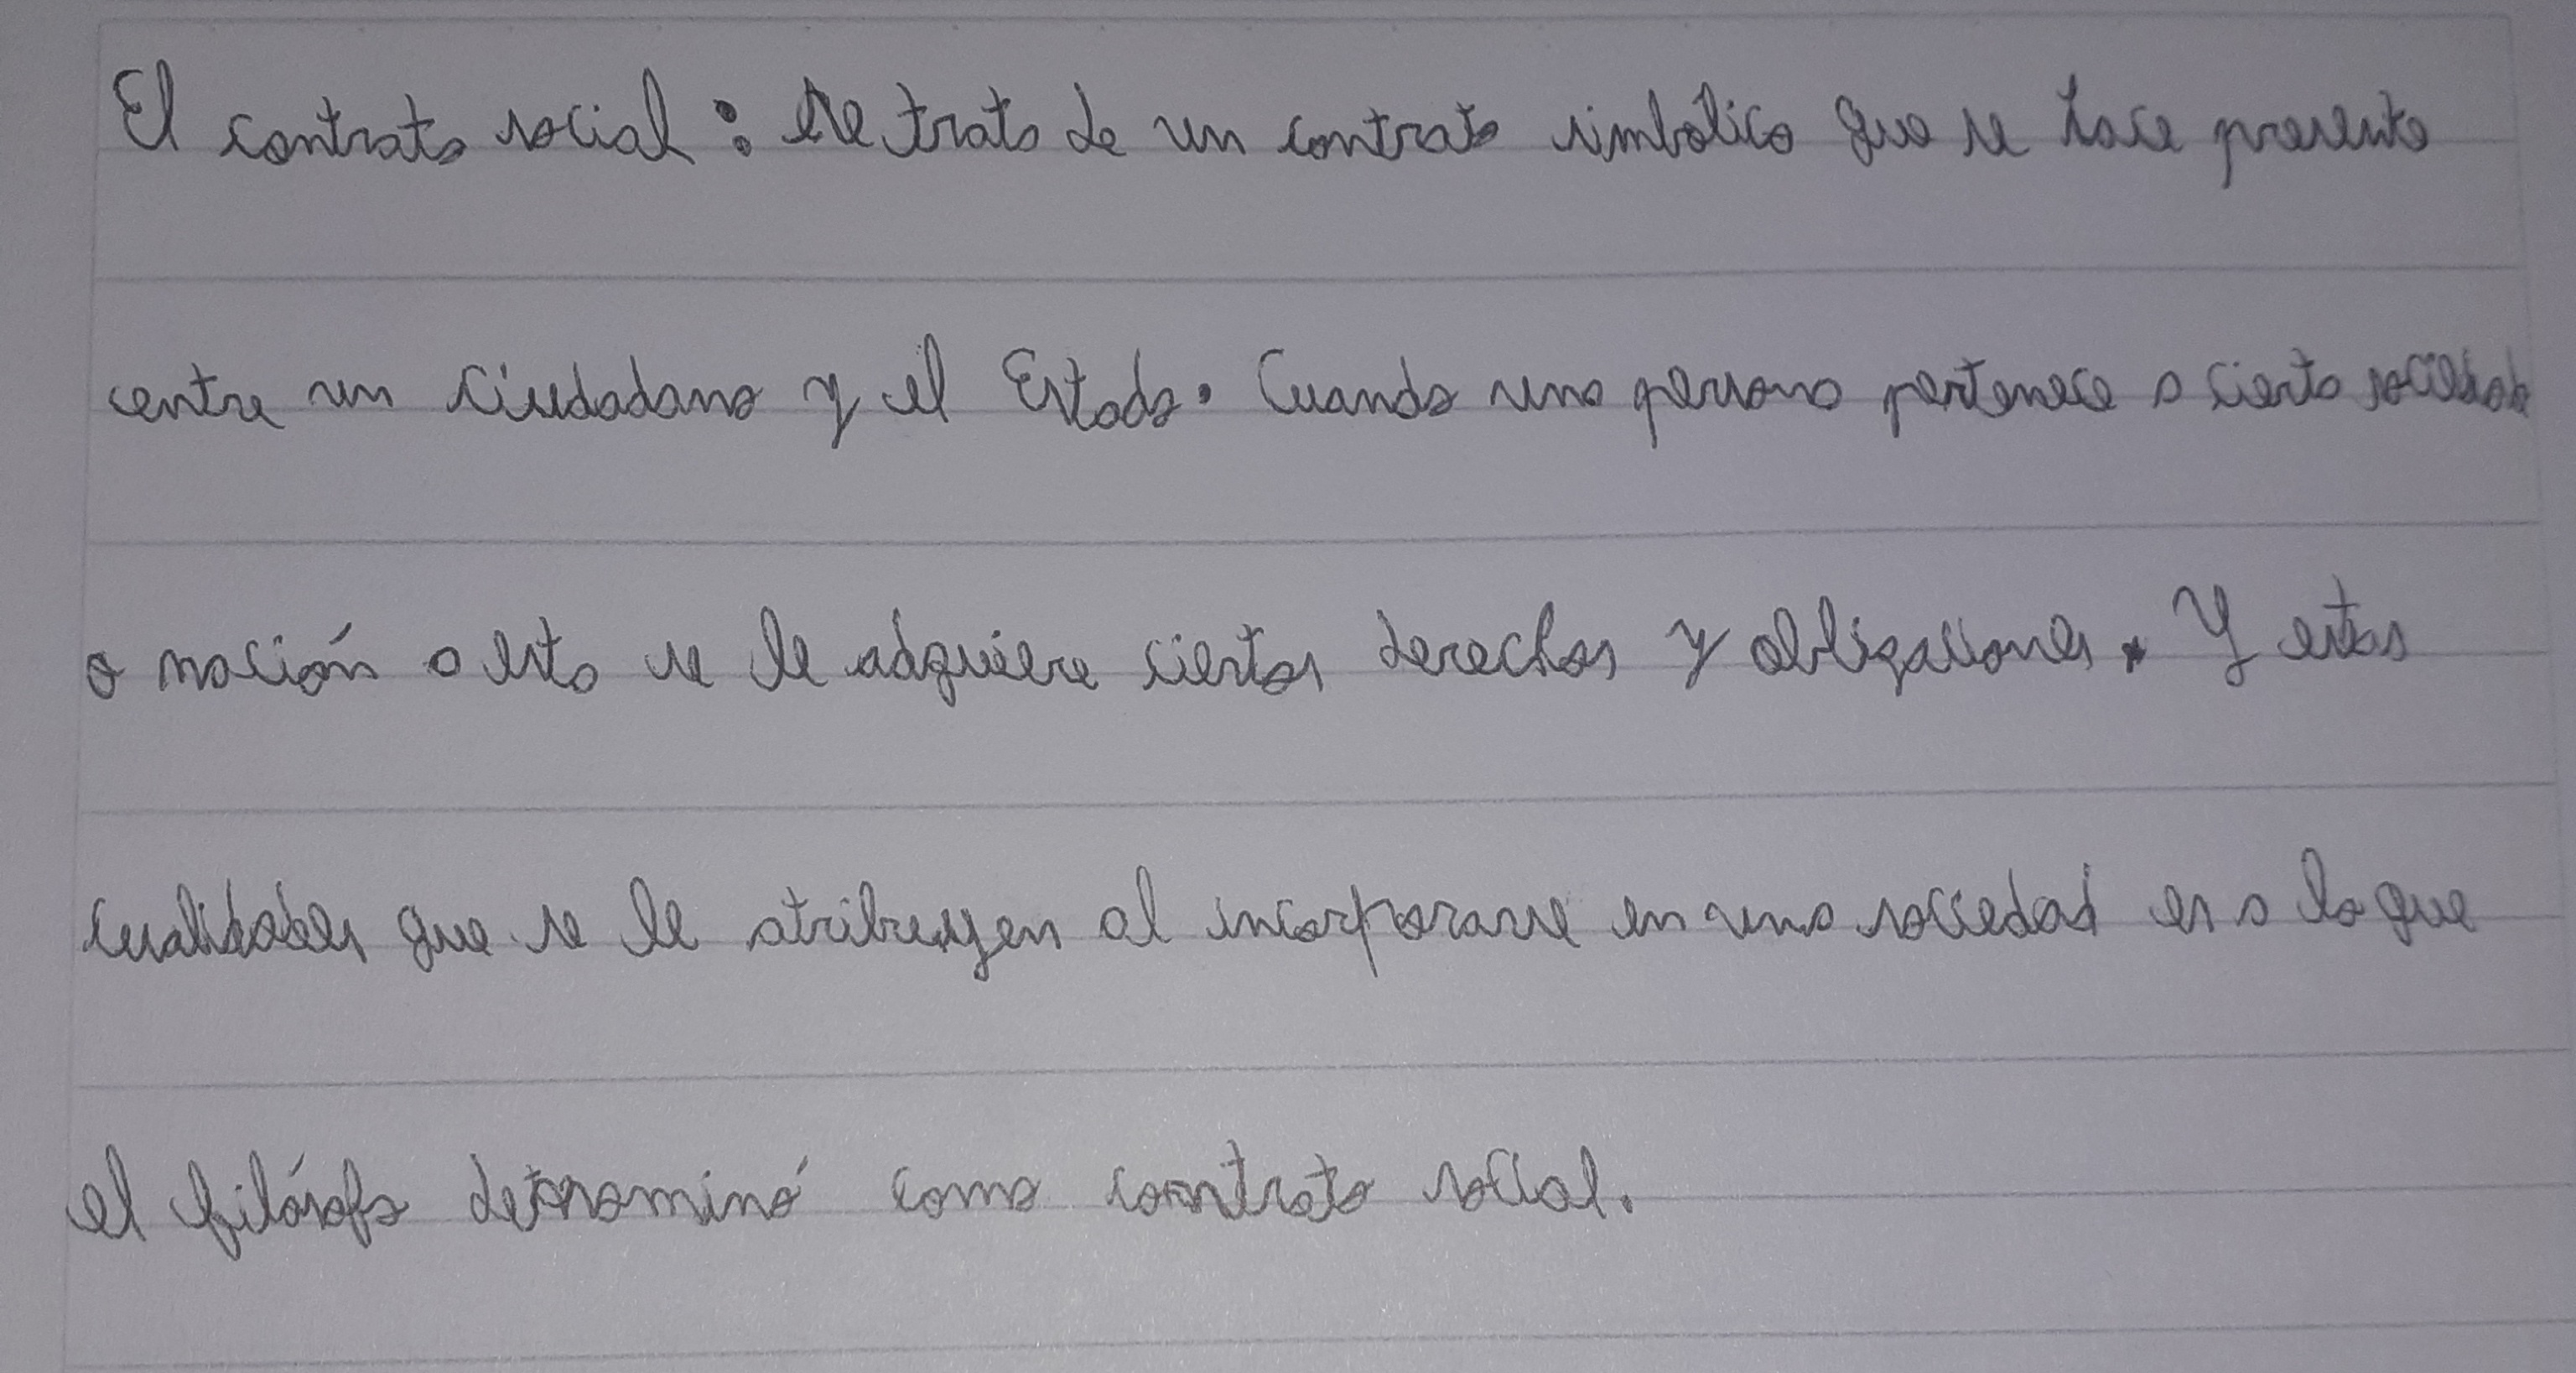 El contrato social: Se trata de un contrato simbólico que se hace presente
entre un ciudadano y el Estado. Cuando una persona pertenece a cierta sociedad
o nación a esta se le adquiere ciertos derechos y obligaciones. Y estas
cualidades que se le atribuyen al incorporarse en una sociedad es a lo que
el filósofo denominó como contrato social.